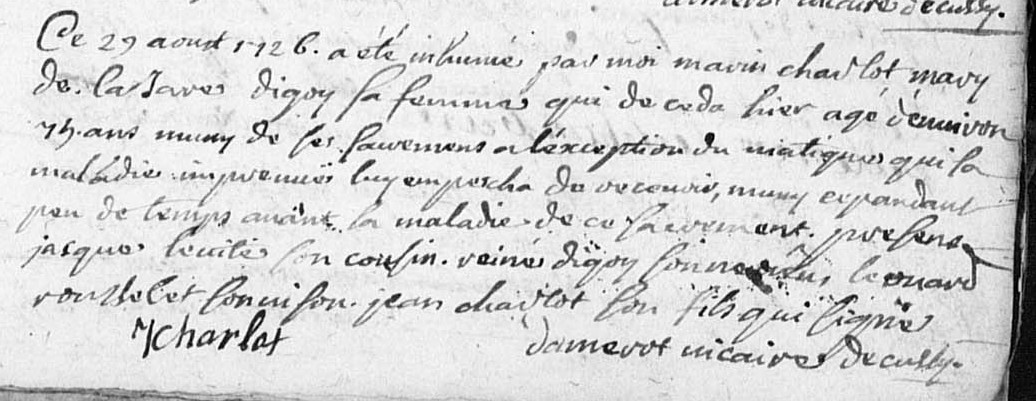 damerot vicaire de cussy.
Ce 29 aoust 1726. a été inhumé par moi marin charlot mary
de Lazare digoy sa femme qui deceda hier agé d'environ
75 ans muny de ses sacremens a l'exception du viatique qui sa
maladie imprevue luy empescha de recevoir, muny cependant
peu de temps avant sa maladie de ce sacrement. presens
jasque leuite son cousin. reiné digoy son leonard
rousselet son uison. jean charlot son fils qui signé
J charlot damerot vicaire de cussy.